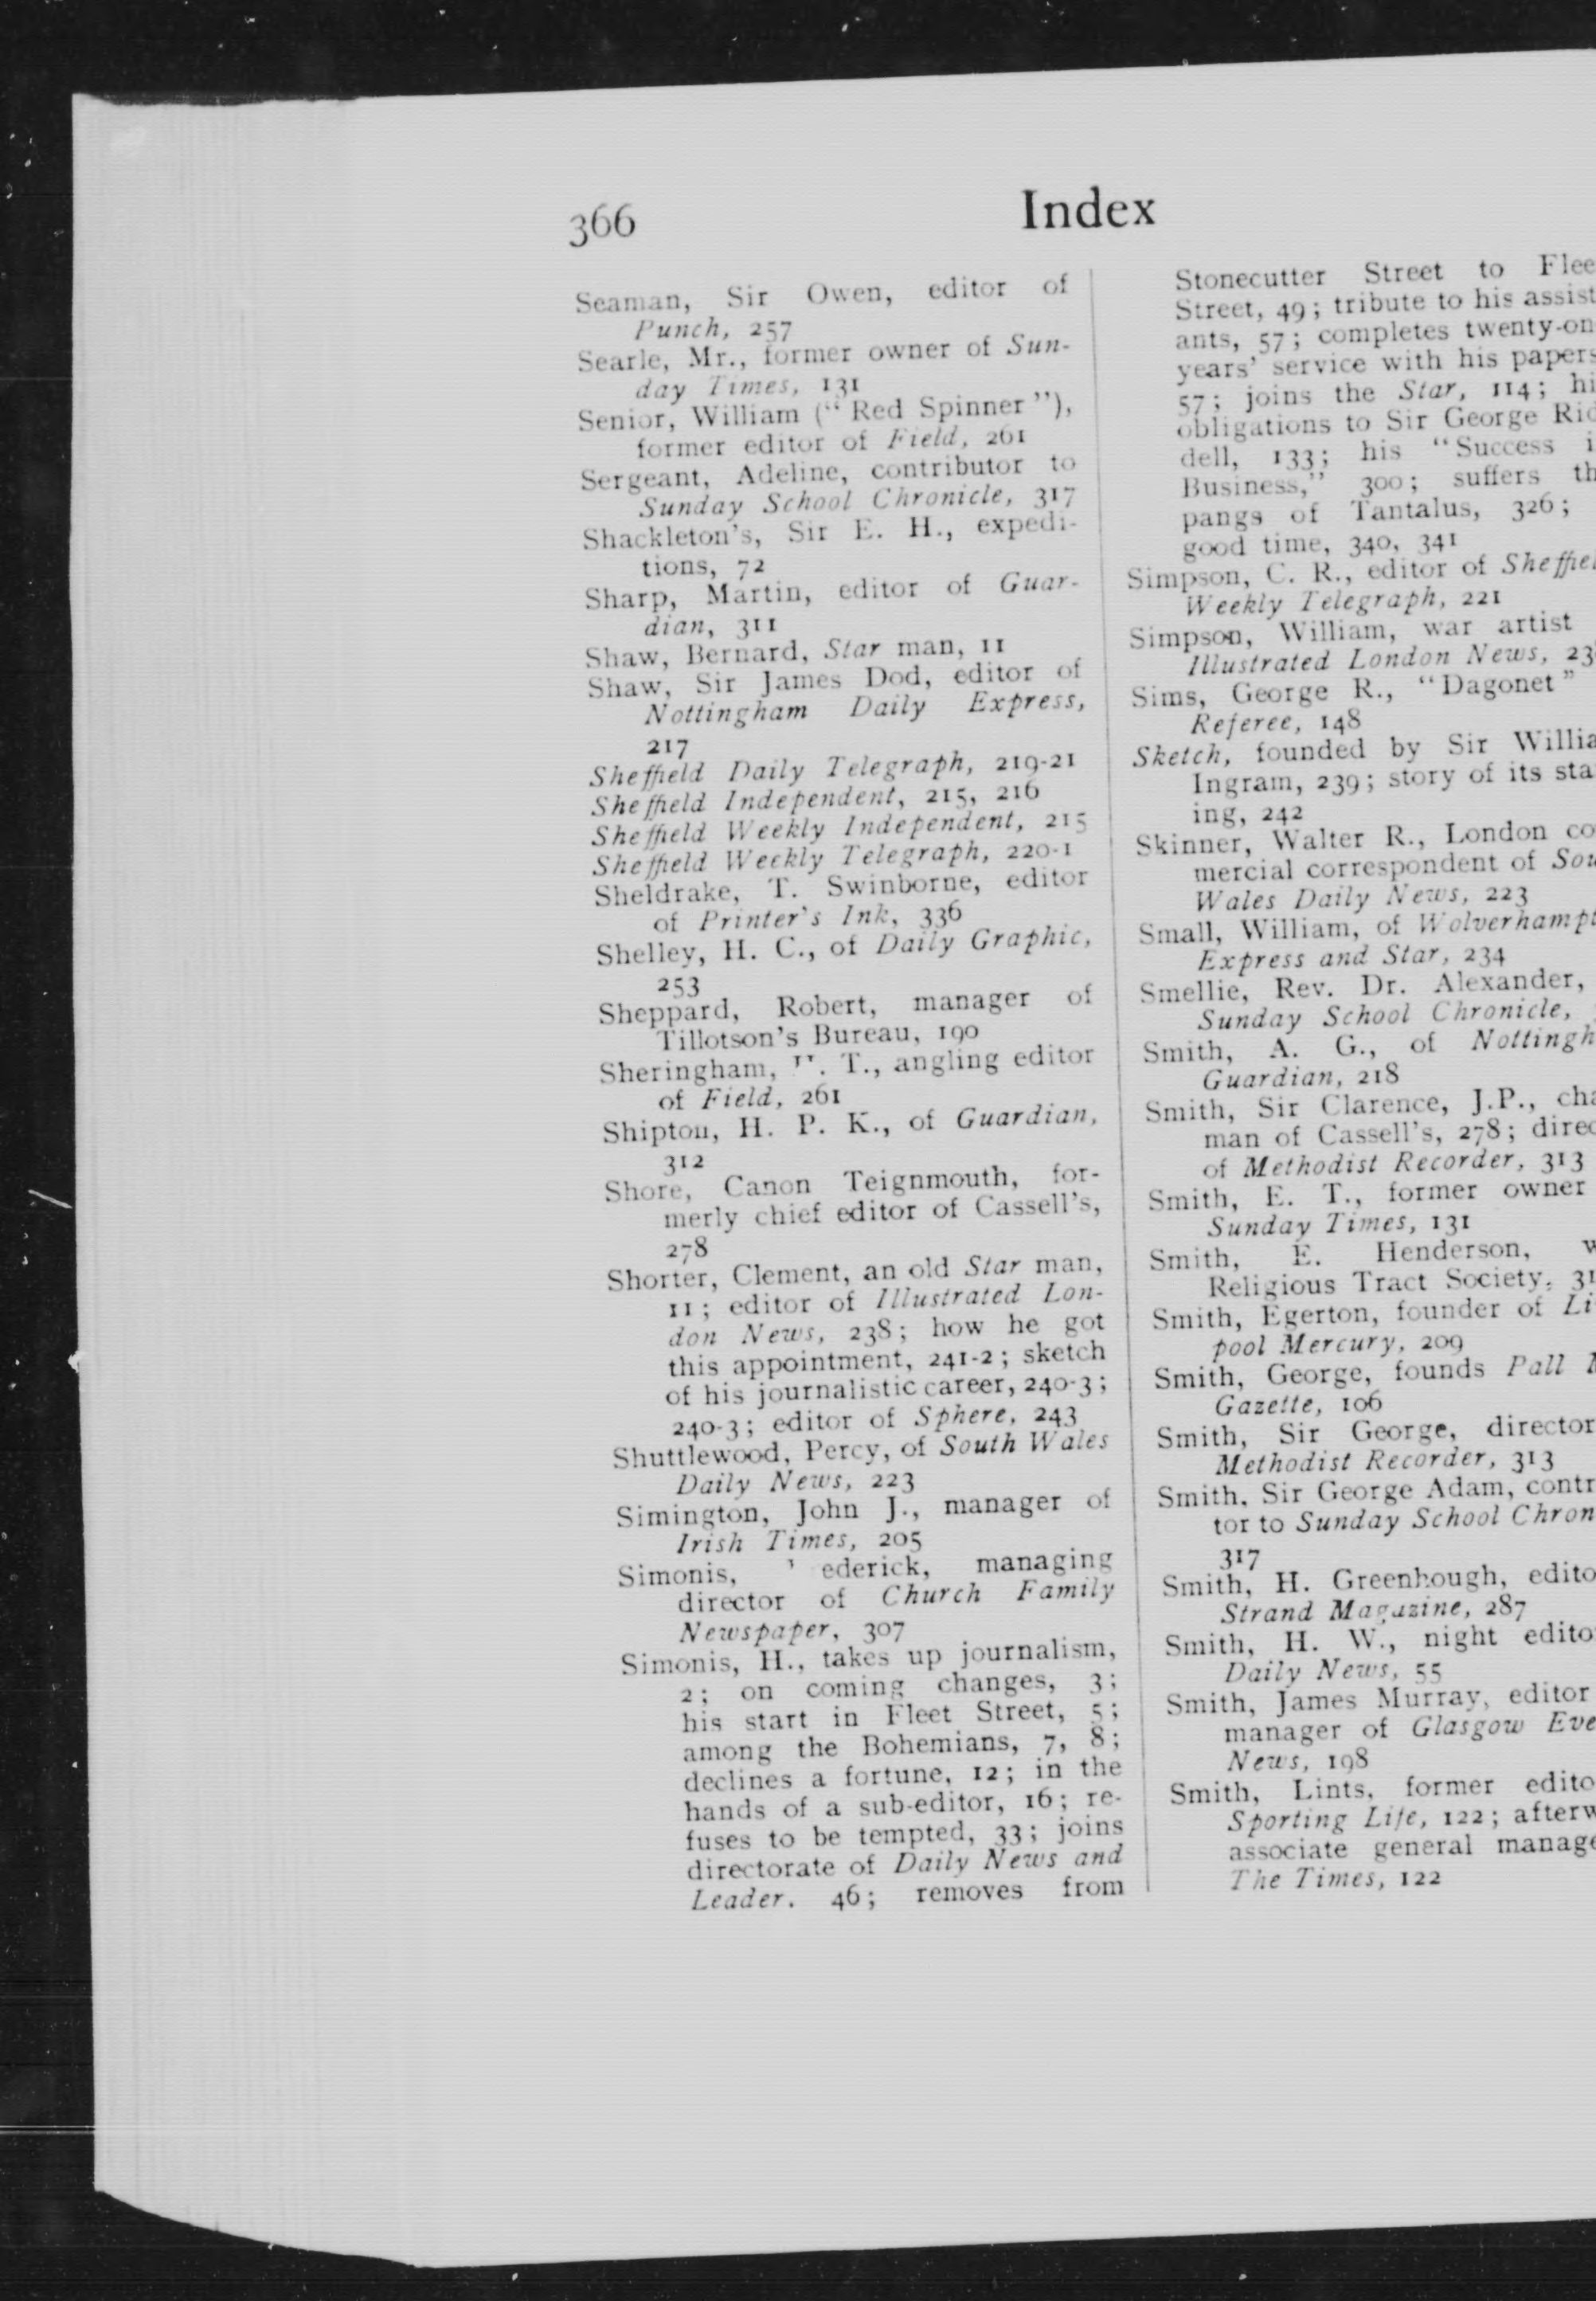 366
Index
Seaman, Sir Owen, editor of
Punch, 257
Searle, Mr., former owner of Sun-
day Times, 131
Senior, William ("Red Spinner"),
former editor of Field, 261
Sergeant, Adeline, contributor to
Sunday School Chronicle, 317
Shackleton's, Sir E. H., expedi-
tions, 72
Sharp, Martin, editor of Guar-
dian, 311
Shaw, Bernard, Star man, 11
Shaw, Sir James Dod, editor of
Nottingham Daily Express,
217
Sheffield Daily Telegraph, 219-21
Sheffield Independent, 215, 216
Sheffield Weekly Independent, 215
Sheffield Weekly Telegraph, 220-1
Sheldrake, T. Swinborne, editor
of Printer's Ink, 336
Shelley, H. C., of Daily Graphic,
253
Sheppard, Robert, manager of
Tillotson's Bureau, 190
Sheringham, T., angling editor
of Field, 261
Shipton, H. P. K., of Guardian,
312
Shore, Canon Teignmouth, for-
merly chief editor of Cassell's,
278
Shorter, Clement, an old Star man,
11; editor of Illustrated Lon-
don News, 238; how he got
this appointment, 241-2; sketch
of his journalistic career, 240-3;
240-3; editor of Sphere, 243
Shuttlewood, Percy, of South Wales
Daily News, 223
Simington, John J., manager of
Irish Times, 205
Simonis, ederick, managing
director of Church Family
Newspaper, 307
Simonis, H., takes up journalism,
2; on coming changes, 3;
his start in Fleet Street, 5;
among the Bohemians, 7, 8;
declines a fortune, 12; in the
hands of a sub-editor, 16; re-
fuses to be tempted, 33; joins
directorate of Daily News and
Leader. 46; removes from
Stonecutter Street to Flee
Street, 49; tribute to his assist
ants, 57; completes twenty-on
years' service with his papers
57; joins the Star, 114; hi
obligations to Sir George Rid
dell, 133; his "Success i
Business," 300; suffers th
pangs of Tantalus, 326;
good time, 340, 341
Simpson, C. R., editor of Sheffiel
Weekly Telegraph, 221
Simpson, William, war artist
Illustrated London News, 23
Sims, George R., "Dagonet"
Referee, 148
Sketch, founded by Sir Willia
Ingram, 239; story of its sta
ing, 242
Skinner, Walter R., London co
mercial correspondent of Sou
Wales Daily News, 223
Small, William, of Wolverhampt
Express and Star, 234
Smellie, Rev. Dr. Alexander,
Sunday School Chronicle,
Smith, A. G., of Nottingh
Guardian, 218
Smith, Sir Clarence, J.P., cha
man of Cassell's, 278; direc
of Methodist Recorder, 313
Smith, E. T., former owner
Sunday Times, 131
Smith, E. Henderson, w
Religious Tract Society, 31
Smith, Egerton, founder of Li
pool Mercury, 209
Smith, George, founds Pall M
Gazette, 106
Smith, Sir George, director
Methodist Recorder, 313
Smith, Sir George Adam, contr
tor to Sunday School Chron
317
Smith, H. Greenhough, edito
Strand Magazine, 287
Smith, H. W., night edito
Daily News, 55
Smith, James Murray, editor
manager of Glasgow Eve
News, 198
Smith, Lints, former edito
Sporting Life, 122; afterw
associate general manage
The Times, 122